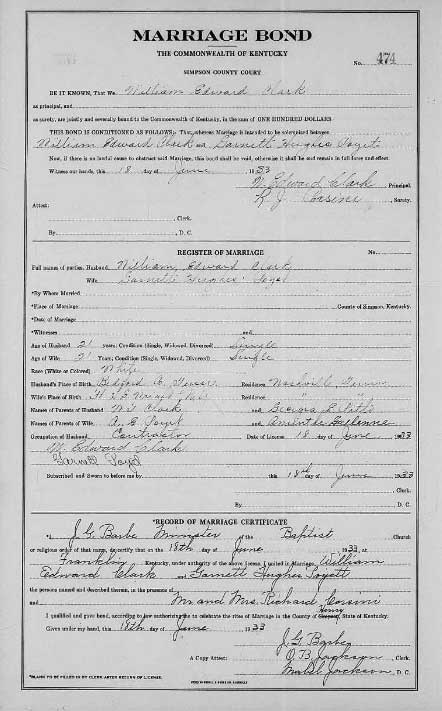 MARRIAGE BOND
THE COMMONWEALTH OF KENTUCKY
No. 474
SIMPSON COUNTY COURT
BE IT KNOWN, That We William Edward Clark
as principal, and
as surety, are jointly and severally bound to the Commonwealth of Kentucky, in the sum of ONE HUNDRED DOLLARS
THIS BOND IS CONDITIONED AS FOLLOWS: That, whereas Marriage is intended to be solemnized between
William Edward Clark and Garnett Hughes
Now, if there is no lawful cause to obstruct said Marriage, this bond shall be void, otherwise it shall be and remain in full force and effect.
Witness our hands, this 18 day of June 1933
W. Edward Clark Principal.
R. J. Corsini, Surety.
Attest:
, Clerk.
By , D. C.
REGISTER OF MARRIAGE No.
Full names of parties: Husband, William Edward Clark
Wife, Garnett Hughes
*By Whom Married
*Place of Marriage County of Simpson, Kentucky.
*Date of Marriage
*Witnesses and
Age of Husband 21 years; Condition (Single, Widowed, Divorced) Single
Age of Wife 21 Years; Condition (Single, Widowed, Divorced) Single
Race (White or Colored) White
Husband's Place of Birth, Bedford Co. Tenn. Residence Nashville Tenn.
Wife's Place of Birth, Residence " "
Names of Parents of Husband Clark and Georgia
Names of Parents of Wife, and
Occupation of Husband Contractor Date of License 18 day of June 1933
W. Edward Clark
Garnett
Subscribed and Sworn to before me by this 18th day of June 1933
, Clerk.
By , D. C.
*RECORD OF MARRIAGE CERTIFICATE
*I, J. G. Barbe Minister of the Baptist Church
or religious order of that name, do certify that on the 18th day of June 1933, at
Franklin Kentucky, under authority of the above license, I united in Marriage, William
Edward Clark and Garnett Hughes
the persons named and described therein, in the presence of
and Mr and Mrs. Richard Corsini
I qualified and gave bond, according to law authorizing me to celebrate the rites of Marriage in the County of Simpson, State of Kentucky.
Given under my hand, this 18th day of June 1933
J. G. Barbe
A Copy Attest: O. B. Jackson, Clerk.
Mabel Jackson, D. C.
*BLANK TO BE FILLED IN BY CLERK AFTER RETURN OF LICENSE.